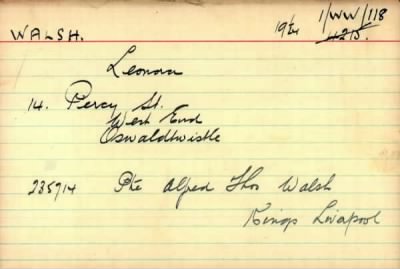 WALSH. 19th 1/WW/118
4215.
Leonora
14. Percy St.
West End
Oswaldtwistle
235914 Pte Alfred Thos Walsh
Kings Liverpool